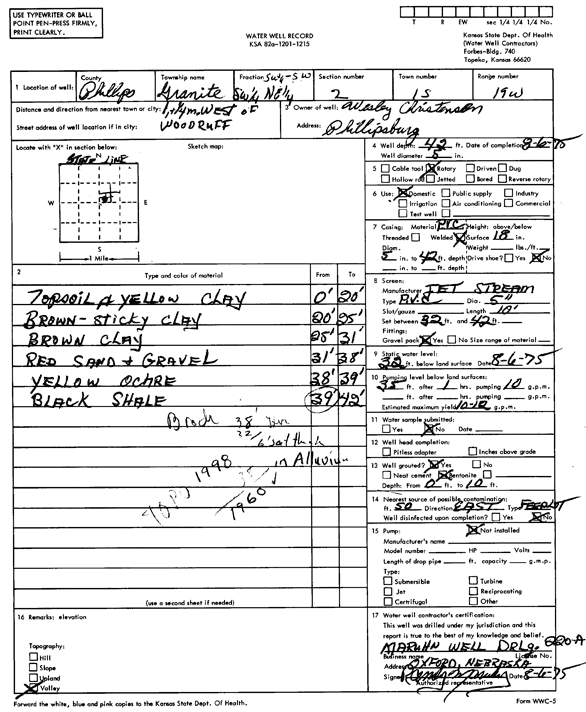 USE TYPEWRITER OR BALL
POINT PEN-PRESS FIRMLY,
PRINT CLEARLY.
WATER WELL RECORD
KSA 82a-1201-1215
T R EW sec 1/4 1/4 1/4 No.
Kansas State Dept. Of Health
(Water Well Contractors)
Forbes-Bldg. 740
Topeka, Kansas 66620
1 Location of well: County Phillips Township name Granite Fraction SW¼-SW SW¼ NE¼ Section number 2 Town number 1S Range number 19W
Distance and direction from nearest town or city: 1+¼ m. WEST OF
Street address of well location if in city: WOODRUFF
3 Owner of well: Wesley Christensen
Address: Phillipsburg
Locate with "X" in section below: Sketch map:
STATE LINE
N
W E
S
1 Mile
4 Well depth: 42 ft. Date of completion 8-6-75
Well diameter 5 in.
5 Cable tool Rotary Driven Dug
Hollow rod Jetted Bored Reverse rotary
6 Use: Domestic Public supply Industry
Irrigation Air conditioning Commercial
Test well
7 Casing: Material P.V.C. Height: above/below
Threaded Welded Surface 18 in.
Diam. Weight lbs./ft.
5 in. to 42 ft. depth Drive shoe? Yes No
in. to ft. depth
2 Type and color of material From To
TOPSOIL & YELLOW CLAY 0' 20'
BROWN-STICKY CLAY 20' 25'
BROWN CLAY 25' 31'
RED SAND & GRAVEL 31' 38'
YELLOW OCHRE 38' 39'
BLACK SHALE 39' 42'
38'
32
6' sat thick
in Alluvium
TOPO 1998
35
1960
(use a second sheet if needed)
8 Screen:
Manufacturer JET STREAM
Type P.V.C. Dia. 5"
Slot/gauze Length 10'
Set between 32 ft. and 42 ft.
Fittings:
Gravel pack Yes No Size range of material
9 Static water level:
32 ft. below land surface Date 8-6-75
10 Pumping level below land surfaces:
35 ft. after 1 hrs. pumping 10 g.p.m.
ft. after hrs. pumping g.p.m.
Estimated maximum yield 10-12 g.p.m.
11 Water sample submitted:
Yes No Date
12 Well head completion:
Pitless adapter Inches above grade
13 Well grouted? Yes No
Neat cement Bentonite
Depth: From 0 ft. to 10 ft.
14 Nearest source of possible contamination:
ft. 50 Direction EAST Type FEEDLOT
Well disinfected upon completion? Yes No
15 Pump: Not installed
Manufacturer's name
Model number HP Volts
Length of drop pipe ft. capacity g.m.p.
Type:
Submersible Turbine
Jet Reciprocating
Certrifugal Other
16 Remarks: elevation
Topography:
Hill
Slope
Upland
Valley
17 Water well contractor's certification:
This well was drilled under my jurisdiction and this
report is true to the best of my knowledge and belief.
MARUHN WELL DRLG. 620-A
Business name License No.
Address OXFORD, NEBRASKA
Signed Date 8-6-75
Authorized representative
Forward the white, blue and pink copies to the Kansas State Dept. Of Health.
Form WWC-5